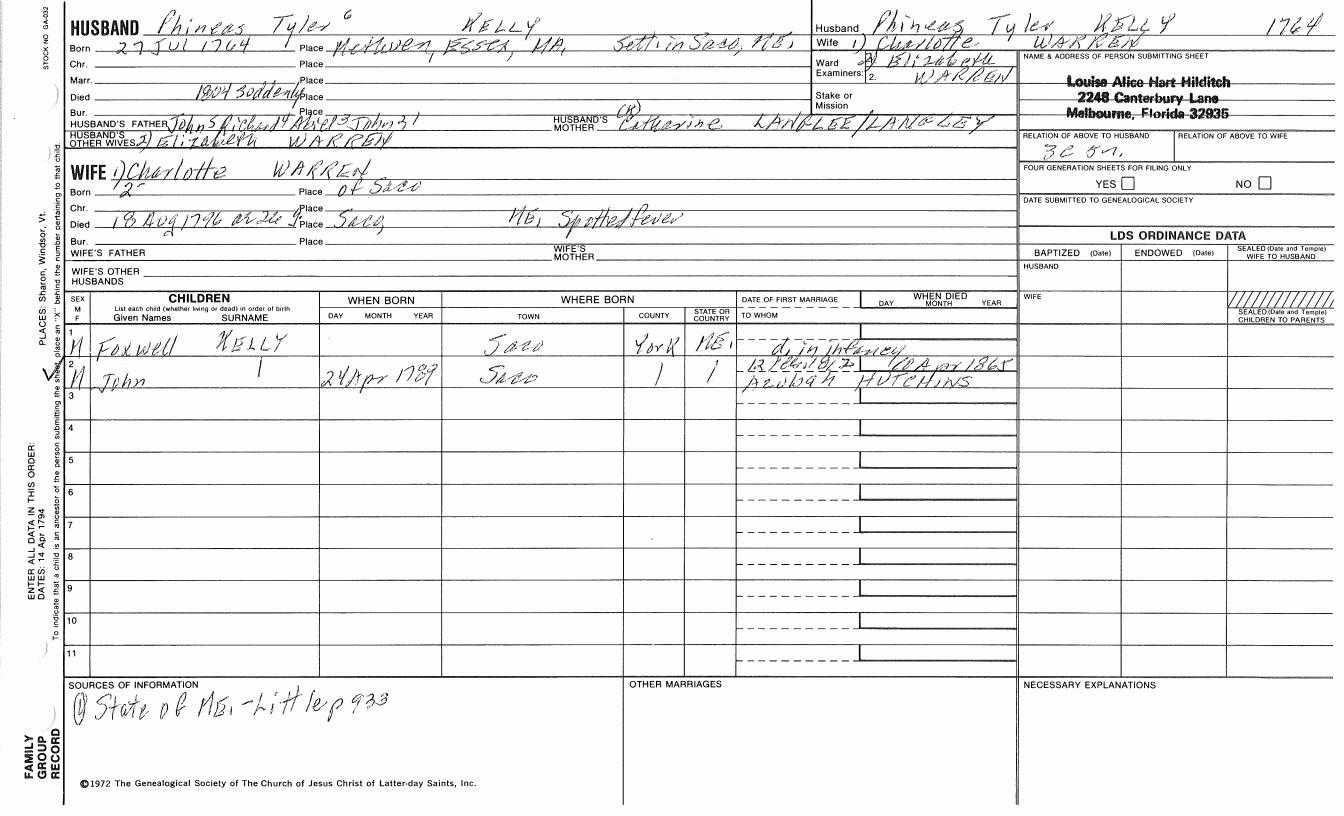 HUSBAND Phineas Tyler 6 KELLY
Born 27 JUL 1764 Place Methuen, Essex, MA. Settl. in Saco, ME.
Chr. Place
Marr. Place
Died 1804 suddenly Place
Bur. Place
HUSBAND'S FATHER John 5 Richard 4 Abiel 3 John 2 1 HUSBAND'S MOTHER (1) Catharine LANGLEE/LANGLEY
HUSBAND'S OTHER WIVES 2) Elizabeth WARREN
WIFE 1) Charlotte WARREN
Born Place of Saco
Chr. Place
Died 18 Aug 1796 Place Saco, ME, Spotted fever
Bur. Place
WIFE'S FATHER WIFE'S MOTHER
WIFE'S OTHER HUSBANDS
Husband Phineas Tyler KELLY 1764
Wife 1) Charlotte WARREN
Ward Examiners: 2) Elizabeth
2. WARREN
Stake or Mission
NAME & ADDRESS OF PERSON SUBMITTING SHEET
Louise Alice Hart Hilditch
2248 Canterbury Lane
Melbourne, Florida 32935
RELATION OF ABOVE TO HUSBAND RELATION OF ABOVE TO WIFE
3C 5r.
FOUR GENERATION SHEETS FOR FILING ONLY
YES NO
DATE SUBMITTED TO GENEALOGICAL SOCIETY
LDS ORDINANCE DATA
BAPTIZED (Date) ENDOWED (Date) SEALED (Date and Temple) WIFE TO HUSBAND
HUSBAND
WIFE
SEALED (Date and Temple) CHILDREN TO PARENTS
SEX M F CHILDREN WHEN BORN WHERE BORN DATE OF FIRST MARRIAGE WHEN DIED
List each child (whether living or dead) in order of birth
Given Names SURNAME DAY MONTH YEAR TOWN COUNTY STATE OR COUNTRY TO WHOM DAY MONTH YEAR
1 M Foxwell KELLY Saco York ME. d. in infancy
2 M John 24 Apr 1789 Saco 10 Apr 1865
HUTCHINS
3
4
5
6
7
8
9
10
11
SOURCES OF INFORMATION
(1) State of ME.-Little p 933
OTHER MARRIAGES
NECESSARY EXPLANATIONS
©1972 The Genealogical Society of The Church of Jesus Christ of Latter-day Saints, Inc.
STOCK NO GA-032
PLACES: Sharon, Windsor, Vt.
ENTER ALL DATA IN THIS ORDER:
DATES: 14 Apr 1794
To indicate that a child is an ancestor of the person submitting the sheet, place an "X" behind the number pertaining to that child.
FAMILY
GROUP
RECORD